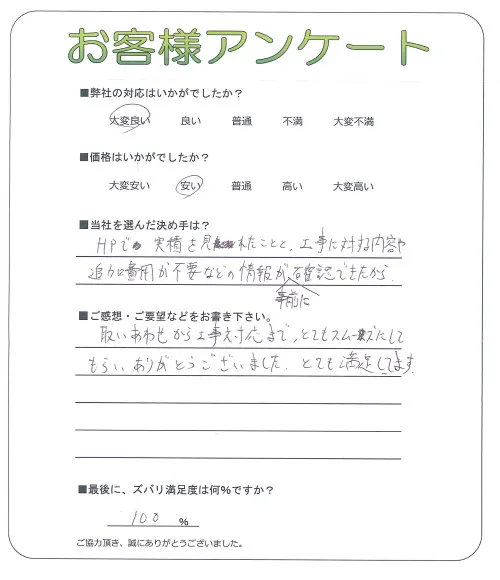 お客様アンケート
■弊社の対応はいかがでしたか？
大変良い 良い 普通 不満 大変不満
■価格はいかがでしたか？
大変安い 安い 普通 高い 大変高い
■当社を選んだ決め手は？
HPで 実績を見れたことと、工事に対する内容や
追加費用が不要などの情報が確認できたから.
事前に
■ご感想・ご要望などをお書き下さい。
取いあわせから工事対応まで、とてもスムーズにして
もらいありがとうございました. とても満足してます.
■最後に、ズバリ満足度は何%ですか？
100 %
ご協力頂き、誠にありがとうございました。